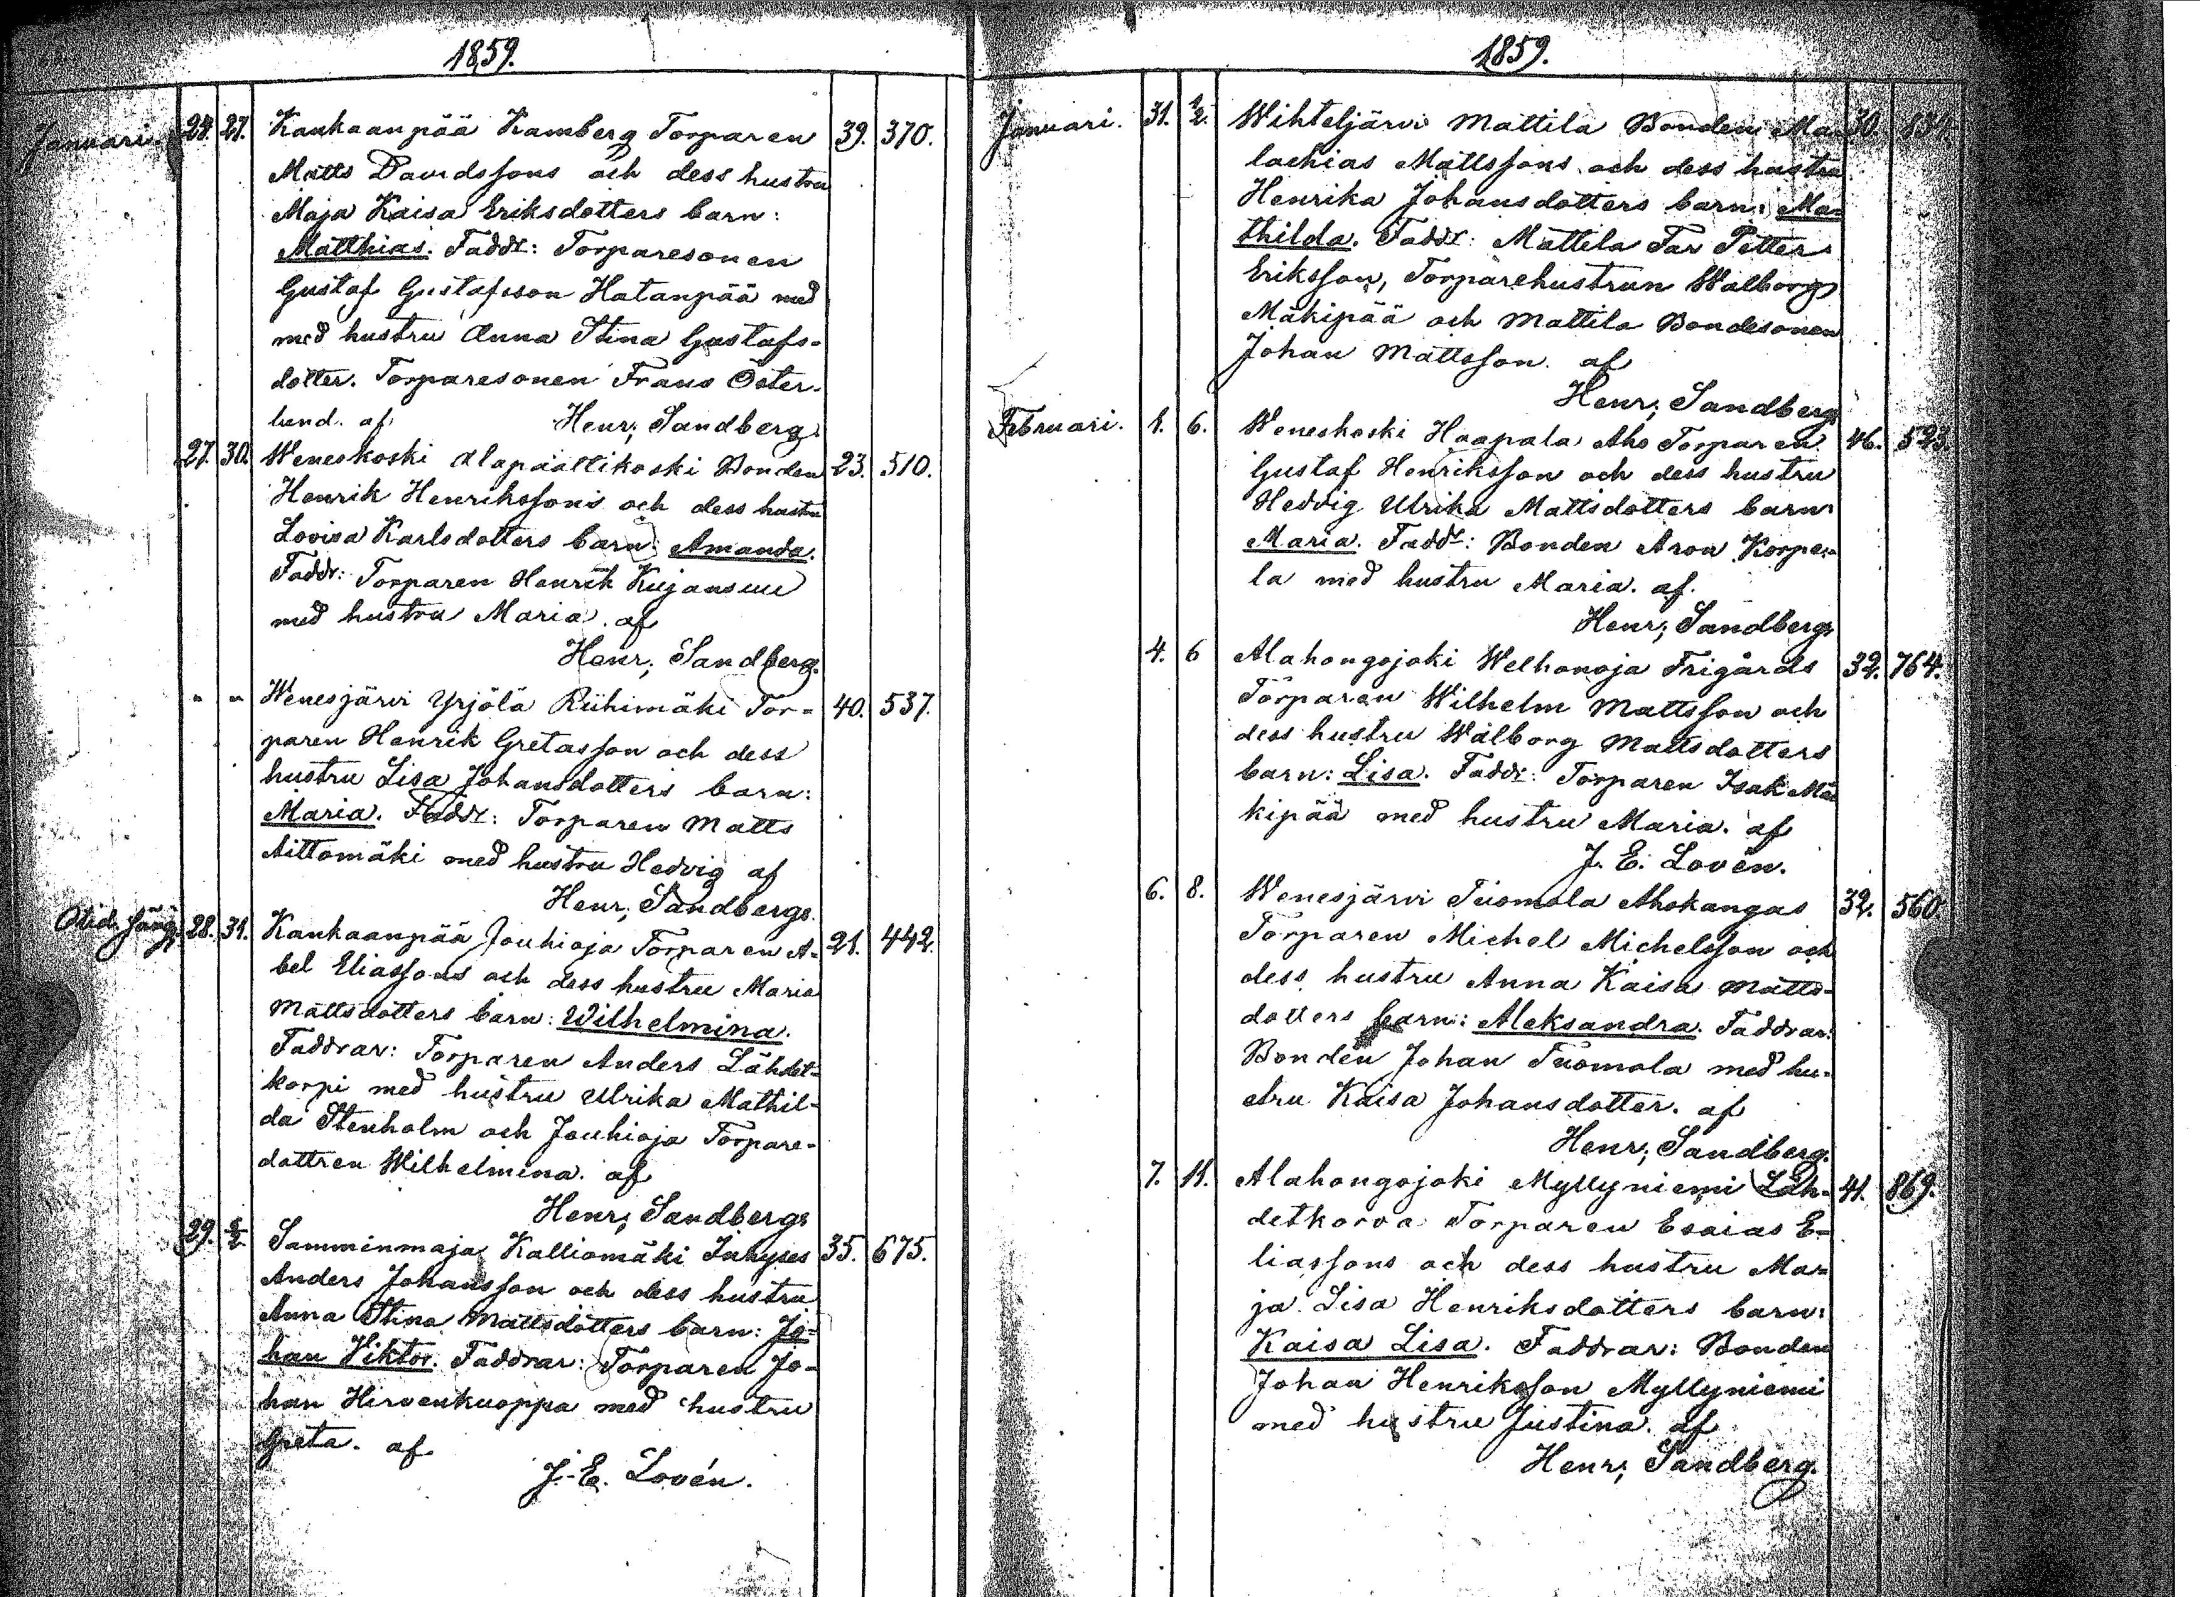 1859.
Januari. 24. 27. Kankaanpää Kamberg Torparen 39. 370.
Matts Davidssons och dess hustru
Maja Kaisa Eriksdotters barn:
Matthias. Faddr: Torparesonen
Gustaf Gustafsson Hatanpää med
med hustru Anna Stina Gustafs-
dotter. Torparesonen Frans Öster-
lund. af Henr; Sandberg
27. 30. Weneskoski Alapäällikoski Bonden 23. 510.
Henrik Henrikssons och dess hustru
Lovisa Karlsdotters barn: Amanda.
Faddr: Torparen Henrik Kujansuu
med hustru Maria. af
Henr; Sandberg.
" " Wenesjärvi Yrjölä Riihimäki Tor- 40. 537.
paren Henrik Gretasson och dess
hustru Lisa Johansdotters barn:
Maria. Faddr: Torparen Matts
Aittomäki med hustru Hedvig af
Henr; Sandberg.
28. 31. Kankaanpää Jouhioja Torparen A- 21. 442.
bel Eliassons och dess hustru Maria
Mattsdotters barn: Wilhelmina.
Faddrar: Torparen Anders Lähdet-
korpi med hustru Ulrika Mathil-
da Stenholm och Jouhioja Torpare-
dottren Wilhelmina. af
Henr; Sandberg
29. 2/2 Samminmaja Kalliomäki Inhyses 35. 675.
Anders Johansson och dess hustru
Anna Stina Mattsdotters barn: Jo-
han Viktor. Faddrar: Torparen Jo-
han Hirvenkuoppa med hustru
Greta. af
J. E. Lovén.
1859.
Januari. 31. 1/2. Wihteljärvi Mattila Bonden Ma- 30.
lachias Mattssons och dess hustru
Henrika Johansdotters barn: Ma-
thilda. Faddr: Mattila Far Petter
Eriksson, Torparehustrun Walborg
Mäkipää och Mattila Bondesonen
Johan Mattsson. af
Henr; Sandberg
Februari. 1. 6. Weneskoski Haapala Aho Torparen 46. 523.
Gustaf Henriksson och dess hustru
Hedvig Ulrika Mattsdotters barn
Maria. Faddr: Bonden Aron Korpe-
la med hustru Maria. af.
Henr; Sandberg
4. 6 Alahongojoki Welhonoja Frigårds 32. 764.
Torparen Wilhelm Mattsson och
dess hustru Walborg Mattsdotters
barn: Lisa. Faddr: Torparen Isak Mä
kipää med hustru Maria. af
J. E. Lovén.
6. 8. Wenesjärvi Tuomola Ahokangas 32. 560.
Torparen Michel Michelsson och
dess hustru Anna Kaisa Matts-
dotters barn: Aleksandra. Faddrar:
Bonden Johan Tuomola med hu-
stru Kaisa Johansdotter. af
Henr; Sandberg.
7. 11. Alahongojoki Myllyniemi Läh- 41. 869.
detkorva Torparen Esaias E-
liassons och dess hustru Ma-
ja Lisa Henriksdotters barn:
Kaisa Lisa. Faddrar: Bonden
Johan Henriksson Myllyniemi
med hustru Justina. af
Henr; Sandberg.